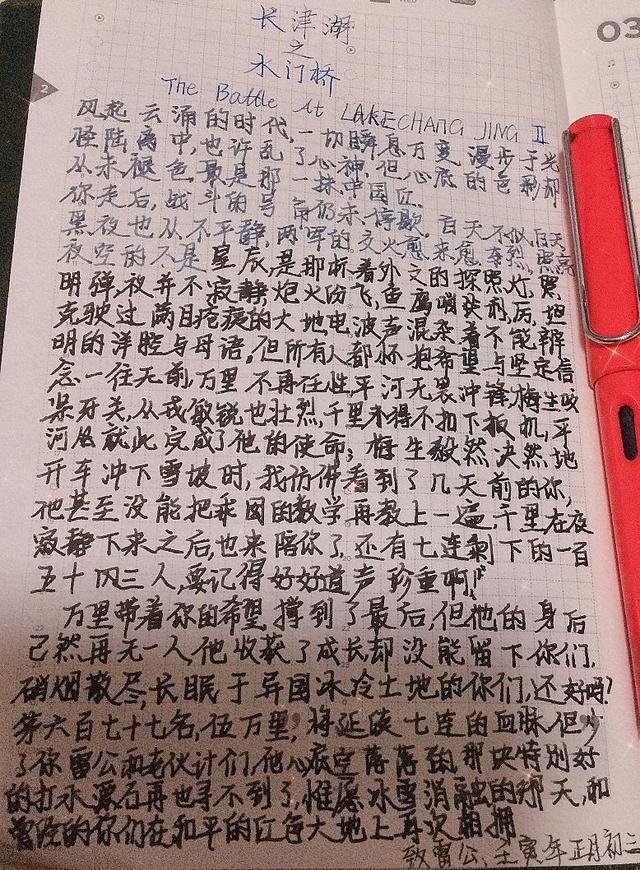 03
长津湖
之
水门桥
2
The Battle At LAKECHANG JING II
风起云涌的时代,一切瞬息万变,漫步于光
怪陆离中,也许乱了心神,但心底的色彩却
从未褪色,最是那一抹中国红.
你走后,战斗的号角仍未停歇.白天不似白天,
黑夜也从不平静,两军的交火愈来愈猛烈,照亮
夜空的不是星辰,是那标着外文的探照灯,照
明弹,夜并不寂静,炮火纷飞,鱼鹰哨获利后,坦
克驶过满目疮痍的大地电波声混杂着不能辨
明的洋腔与母语,但所有人都怀抱希望与坚定信
念一往无前,万里不再任性,平河无畏冲锋,梅生咬
紧牙关,从戎敏锐也壮烈,千里不得不扣下扳机,平
河总就此完成了他的使命;梅生毅然决然地
开车冲下雪坡时,我仿佛看到了几天前的你,
他甚至没能把乘园的数学再教上一遍,千里在夜
寂静下来之后,也来陪你了,还有七连剩下的一百
五十四三人,要记得好好道声珍重啊!
万里带着你的希望,撑到了最后,但他的身后
已然再无一人,他收获了成长却没能留下你们,
硝烟散尽,长眠于异国冰冷土地的你们,还好吗?
第六百七十七名,伍万里,将延续七连的血脉,但少
了你雷公和老伙计们,他心底空落落的,那块特别好
的打水漂石再也寻不到了,惟愿冰雪消融的那天,和
曾经的你们在和平的红色大地上再次相拥
致雷公、壬寅年正月初三